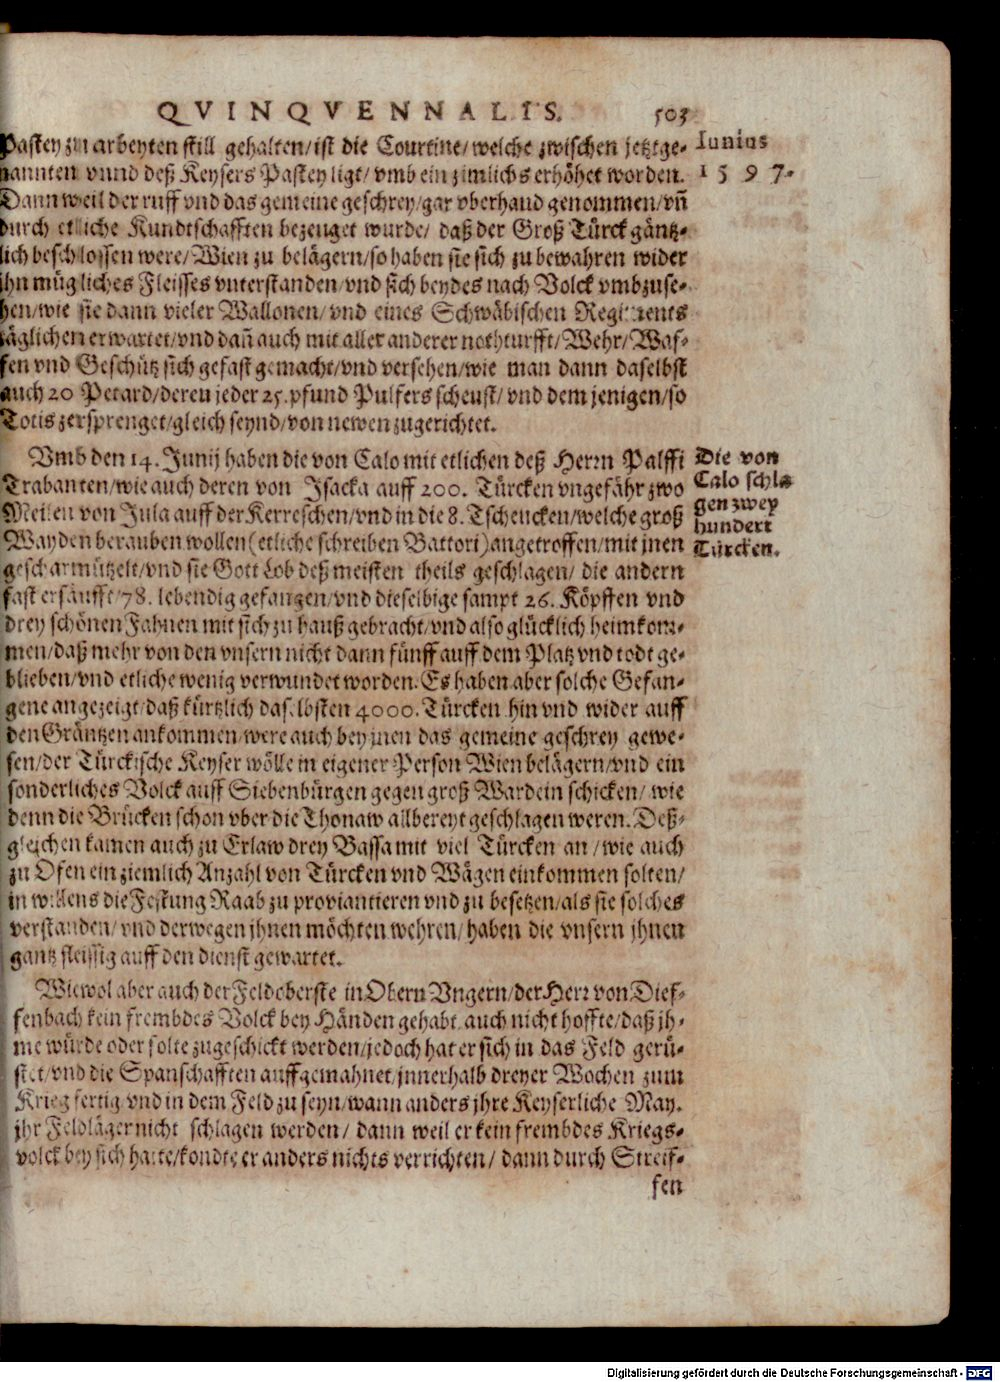 QVINQVENNALIS. 503
Pastey zu arbeyten still gehalten/ ist die Courtine/ welche zwischen jetztge-
nannten vnnd deß Keysers Pastey ligt/ vmb ein zimlichs erhöhet worden.
Dann weil der ruff vnd das gemeine geschrey/ gar vberhand genommen/ vñ
durch etliche Kundtschafften bezeuget wurde/ daß der Groß Türck gäntz-
lich beschlossen were/ Wien zu belägern/ so haben sie sich zu bewahren wider
jhn mügliches Fleisses vnterstanden/ vnd sich beydes nach Volck vmbzuse-
hen/ wie sie dann vieler Wallonen/ vnd eines Schwäbischen Regiments
täglichen erwartet/ vnd dañ auch mit aller anderer nothturfft/ Wehr/ Waf-
fen vnd Geschütz sich gefast gemacht/ vnd versehen/ wie man dann daselbst
auch 20 Petard/ deren jeder 25. pfund Pulfers scheust/ vnd dem jenigen/ so
Totis zersprenget/ gleich seynd/ von newen zugerichtet.
Iunius
1597.
Vmb den 14. Junij haben die von Calo mit etlichen deß Herrn Palffi
Trabanten/ wie auch deren von Jsacka auff 200. Türcken vngefähr zwo
Meilen von Jula auff der Kerreschen/ vnd in die 8. Tscheucken/ welche groß
Wayden berauben wollen (etliche schreiben Battori) angetroffen/ mit jnen
gescharmützelt/ vnd sie Gott Lob deß meisten theils geschlagen/ die andern
fast ersäufft/ 78. lebendig gefangen/ vnd dieselbige sampt 26. Köpffen vnd
drey schönen Fahnen mit sich zu hauß gebracht/ vnd also glücklich heimkom-
men/ daß mehr von den vnsern nicht dann fünff auff dem Platz vnd todt ge-
blieben/ vnd etliche wenig verwundet worden. Es haben aber solche Gefan-
gene angezeigt/ daß kürtzlich daselbsten 4000. Türcken hin vnd wider auff
den Gräntzen ankommen/ were auch bey jnen das gemeine geschrey gewe-
sen/ der Türckische Keyser wölle in eigener Person Wien belägern/ vnd ein
sonderliches Volck auff Siebenbürgen gegen groß Wardein schicken/ wie
denn die Brücken schon vber die Thonaw allbereyt geschlagen weren. Deß-
gleichen kamen auch zu Erlaw drey Bassa mit viel Türcken an/ wie auch
zu Ofen ein ziemlich Anzahl von Türcken vnd Wägen einkommen solten/
in willens die Festung Raab zu proviantieren vnd zu besetzen/ als sie solches
verstanden/ vnd derwegen jhnen möchten wehren/ haben die vnsern jhnen
gantz fleissig auff den dienst gewartet.
Die von
Calo schla
gen zwey
hundert
Türcken.
Wiewol aber auch der Feldoberste in Obern Vngern/ der Herr von Dief-
fenbach kein frembdes Volck bey Händen gehabt/ auch nicht hoffte/ daß jh-
me würde oder solte zugeschickt werden/ jedoch hat er sich in das Feld gerü-
stet/ vnd die Spanschafften auffgemahnet/ innerhalb dreyer Wochen zum
Krieg fertig vnd in dem Feld zu seyn/ wann anders jhre Keyserliche May.
jhr Feldläger nicht schlagen werden/ dann weil er kein frembdes Kriegs-
volck bey sich hatte/ kondte er anders nichts verrichten/ dann durch Streif-
fen
Digitalisierung gefördert durch die Deutsche Forschungsgemeinschaft - DFG